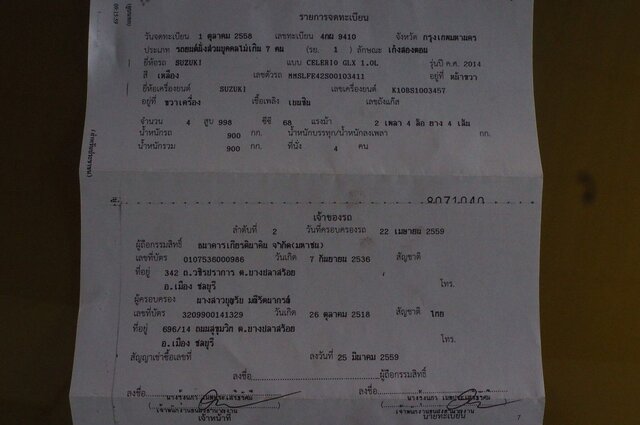 รายการจดทะเบียน
วันจดทะเบียน 1 ตุลาคม 2558 เลขทะเบียน 4กผ 9410 จังหวัด กรุงเทพมหานคร
ประเภท รถยนต์นั่งส่วนบุคคลไม่เกิน 7 คน (รย. 1) ลักษณะ เก๋งสองตอน
ยี่ห้อรถ SUZUKI แบบ CELERIO GLX 1.0L รุ่นปี ค.ศ. 2014
สี เหลือง เลขตัวรถ MMSLFE42S00103411 อยู่ที่ หน้าขวา
ยี่ห้อเครื่องยนต์ SUZUKI เลขเครื่องยนต์ K10BS1003457
อยู่ที่ ขวาเครื่อง เชื้อเพลิง เบนซิน เลขถังแก๊ส
จำนวน 4 สูบ 998 ซีซี 68 แรงม้า 2 เพลา 4 ล้อ ยาง 4 เส้น
น้ำหนักรถ 900 กก. น้ำหนักบรรทุก/น้ำหนักลงเพลา กก.
น้ำหนักรวม 900 กก. ที่นั่ง 4 คน
8071040
เจ้าของรถ
ลำดับที่ 2 วันที่ครอบครองรถ 22 เมษายน 2559
ผู้ถือกรรมสิทธิ์ ธนาคารเกียรตินาคิน จำกัด(มหาชน)
เลขที่บัตร 0107536000986 วันเกิด 7 กันยายน 2536 สัญชาติ
ที่อยู่ 342 ถ.วชิรปราการ ต.บางปลาสร้อย
อ.เมือง ชลบุรี โทร.
ผู้ครอบครอง นางสาวบุษรัย มณีรัตนากรส์
เลขที่บัตร 3209900141329 วันเกิด 26 ตุลาคม 2518 สัญชาติ ไทย
ที่อยู่ 696/14 ถนนสุขุมวิท ต.บางปลาสร้อย
อ.เมือง ชลบุรี โทร.
สัญญาเช่าซื้อเลขที่ ลงวันที่ 25 มีนาคม 2559
ลงชื่อ ผู้ถือกรรมสิทธิ์
ลงชื่อ ลงชื่อ
เจ้าหน้าที่ นายทะเบียน
7